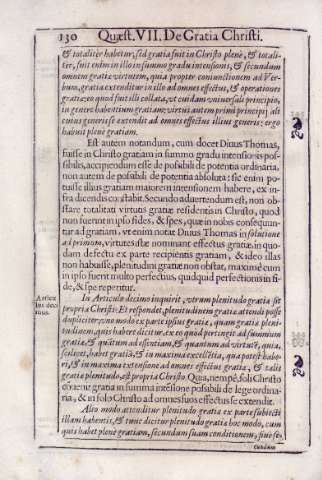 130 Quæst. VII. De Gratia Christi.
& totaliter habetur, sed gratia fuit in Christo plenè, & totali-
ter, fuit enim in illo in summo gradu intensionis, & secundum
omnem gratiæ virtutem, quia propter coniunctionem ad Ver-
bum, gratia extenditur in illo ad omnes effectus, & operationes
gratiæ: eo quod fuit illi collata, vt cuidam vniuersali principio,
in genere habentium gratiam: virtus autem primi principij ali
cuius generis se extendit ad omnes effectus illius generis: ergo
habuit plenè gratiam.
Est autem notandum, cum docet Diuus Thomas,
fuisse in Christo gratiam in summo gradu intensionis pos-
sibilis, accipiendum esse de possibili de potentia ordinaria,
non autem de possibili de potentia absoluta: sic enim po-
tuisse illius gratiam maiorem intensionem habere, ex in-
fra dicendis constabit. Secundo aduertendum est, non ob-
stare totalitati virtutis gratiæ residentis in Christo, quod
non fuerunt in ipso fides, & spes, quæ in nobis consequun-
tur ad gratiam, vt enim notat Diuus Thomas in solutione
ad primum, virtutes istæ nominant effectus gratiæ in quo-
dam defectu ex parte recipientis gratiam, & ideo illas
non habuisse, plenitudini gratiæ non obstat, maximè cum
in ipso fuerit multo perfectius, quidquid perfectionis in fi-
de, & spe reperitur.
Articu
lus deci
mus.
In Articulo decimo inquirit, vtrum plenitudo gratiæ sit
propria Christi: Et respondet, plenitudinem gratiæ attendi posse
dupliciter, vno modo ex parte ipsius gratiæ, quam gratia pleni-
tudinem, quis habere dicitur, ex eo quod pertingit ad summum
gratiæ, & quãtum ad essentiam, & quantum ad virtutẽ, quia,
scilicet, habet gratiã, & in maxima excellẽtia, qua potest habe-
ri, & in maxima extensione ad omnes effectus gratiæ, & talis
gratiæ plenitudo, est propria Christo. Quia, nempè, soli Christo
conuenit gratia in summa intensione possibili de lege ordina-
ria, & in solo Christo ad omnes suos effectus se extendit.
Alio modo attenditur plenitudo gratiæ ex parte subiecti
illam habentis, & tunc dicitur plenitudo gratiæ hoc modo, cum
quis habet plenè gratiam, secundum suam conditionem, siue se-
cundum